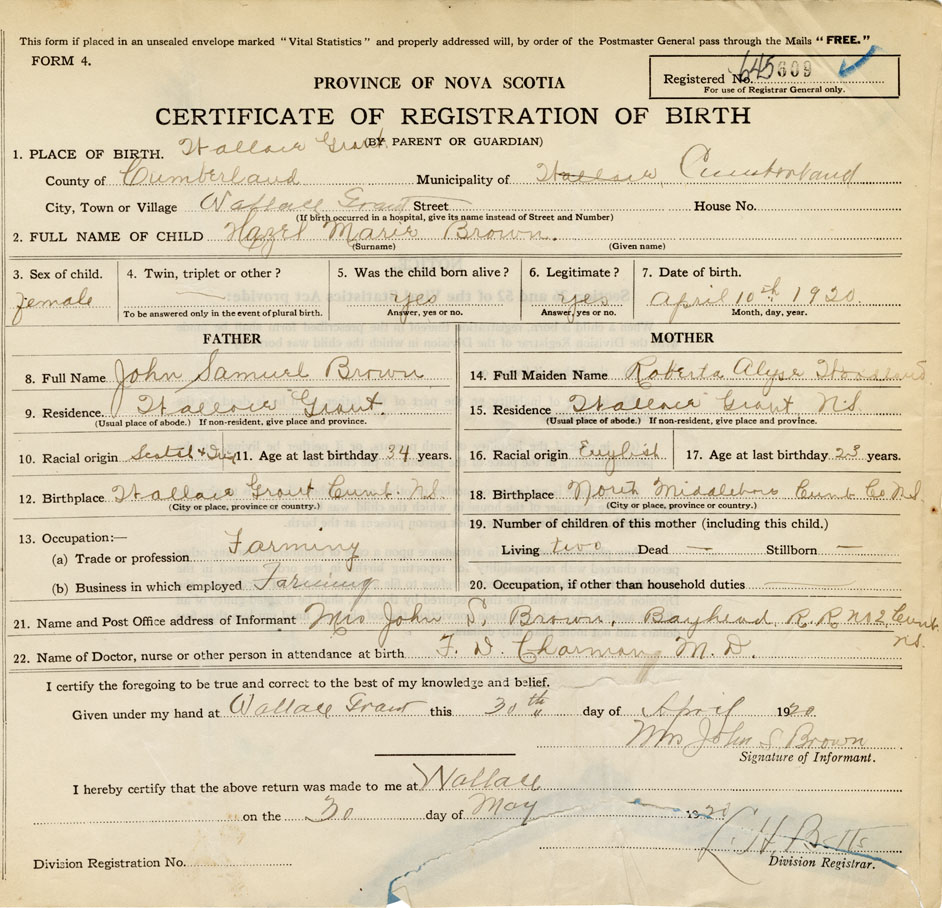 This form if placed in an unsealed envelope marked "Vital Statistics" and properly addressed will, by order of the Postmaster General pass through the Mails "FREE."
FORM 4.
Registered No. 645609
For use of Registrar General only.
PROVINCE OF NOVA SCOTIA
CERTIFICATE OF REGISTRATION OF BIRTH
(BY PARENT OR GUARDIAN)
1. PLACE OF BIRTH. Wallace Grant
County of Cumberland Municipality of Wallace, Cumberland
City, Town or Village Wallace Grant Street House No.
(If birth occurred in a hospital, give its name instead of Street and Number)
2. FULL NAME OF CHILD Hazel Marie Brown.
(Surname) (Given name)
3. Sex of child. 4. Twin, triplet or other? 5. Was the child born alive? 6. Legitimate? 7. Date of birth.
female — yes yes April 10th 1920
To be answered only in the event of plural birth. Answer, yes or no. Answer, yes or no. Month, day, year.
FATHER MOTHER
8. Full Name John Samuel Brown 14. Full Maiden Name Roberta Alyse
9. Residence. Wallace Grant. 15. Residence Wallace Grant, N.S.
(Usual place of abode.) If non-resident, give place and province. (Usual place of abode.) If non-resident, give place and province.
10. Racial origin Scotch & 11. Age at last birthday 34 years. 16. Racial origin English 17. Age at last birthday 23 years.
12. Birthplace Wallace Grant Cumb. N.S. 18. Birthplace North Middleboro Cumb Co N.S.
(City or place, province or country.) (City or place, province or country.)
13. Occupation:— 19. Number of children of this mother (including this child.)
(a) Trade or profession Farming Living two Dead — Stillborn —
(b) Business in which employed Farming 20. Occupation, if other than household duties
21. Name and Post Office address of Informant Mrs John S. Brown, Bayhead, R.R. No 2, Cumb. N.S.
22. Name of Doctor, nurse or other person in attendance at birth F. D. Charman M.D.
I certify the foregoing to be true and correct to the best of my knowledge and belief.
Given under my hand at Wallace Grant this 30th day of April 1920
Mrs John S Brown
Signature of Informant.
I hereby certify that the above return was made to me at Wallace
on the 30 day of May 1920
Division Registration No. Division Registrar.